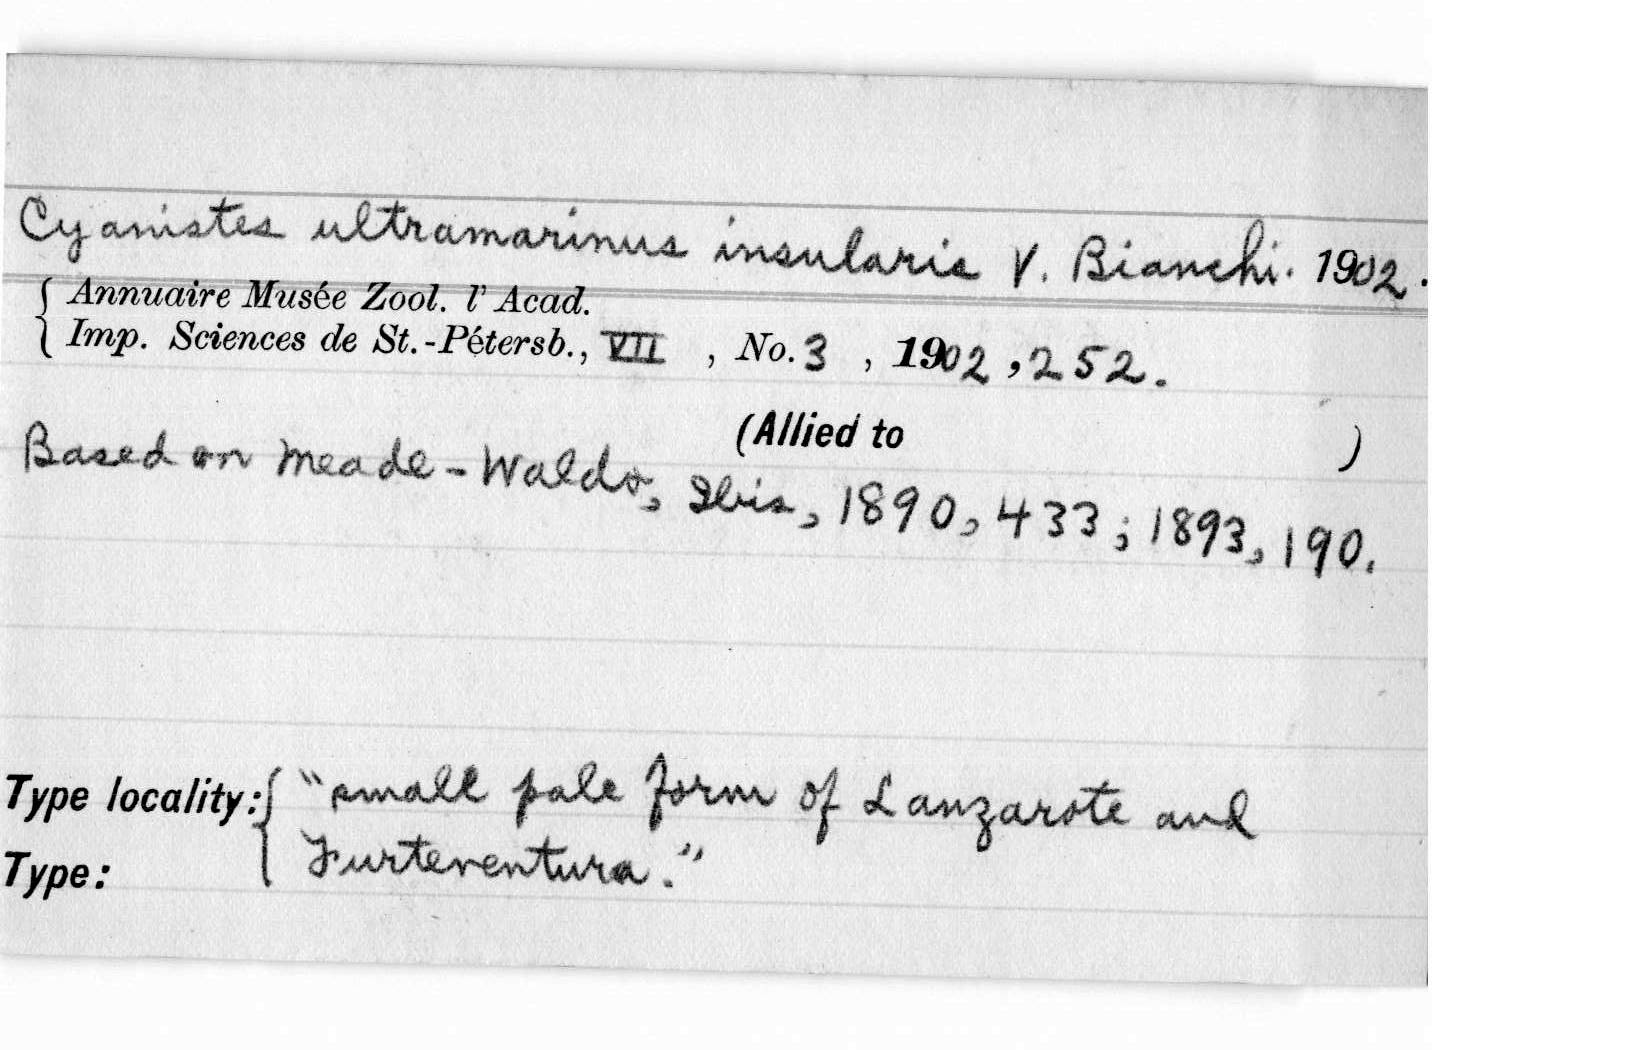 Cyanistes ultramarinus insularis V. Bianchi. 1902.
{ Annuaire Musée Zool. l' Acad.
{ Imp. Sciences de St.-Pétersb., VII , No. 3 , 1902 , 252.
(Allied to )
Based on Meade-Waldo, Ibis, 1890, 433; 1893, 190.
Type locality: { "small pale form of Lanzarote and
Type: Furteventura."